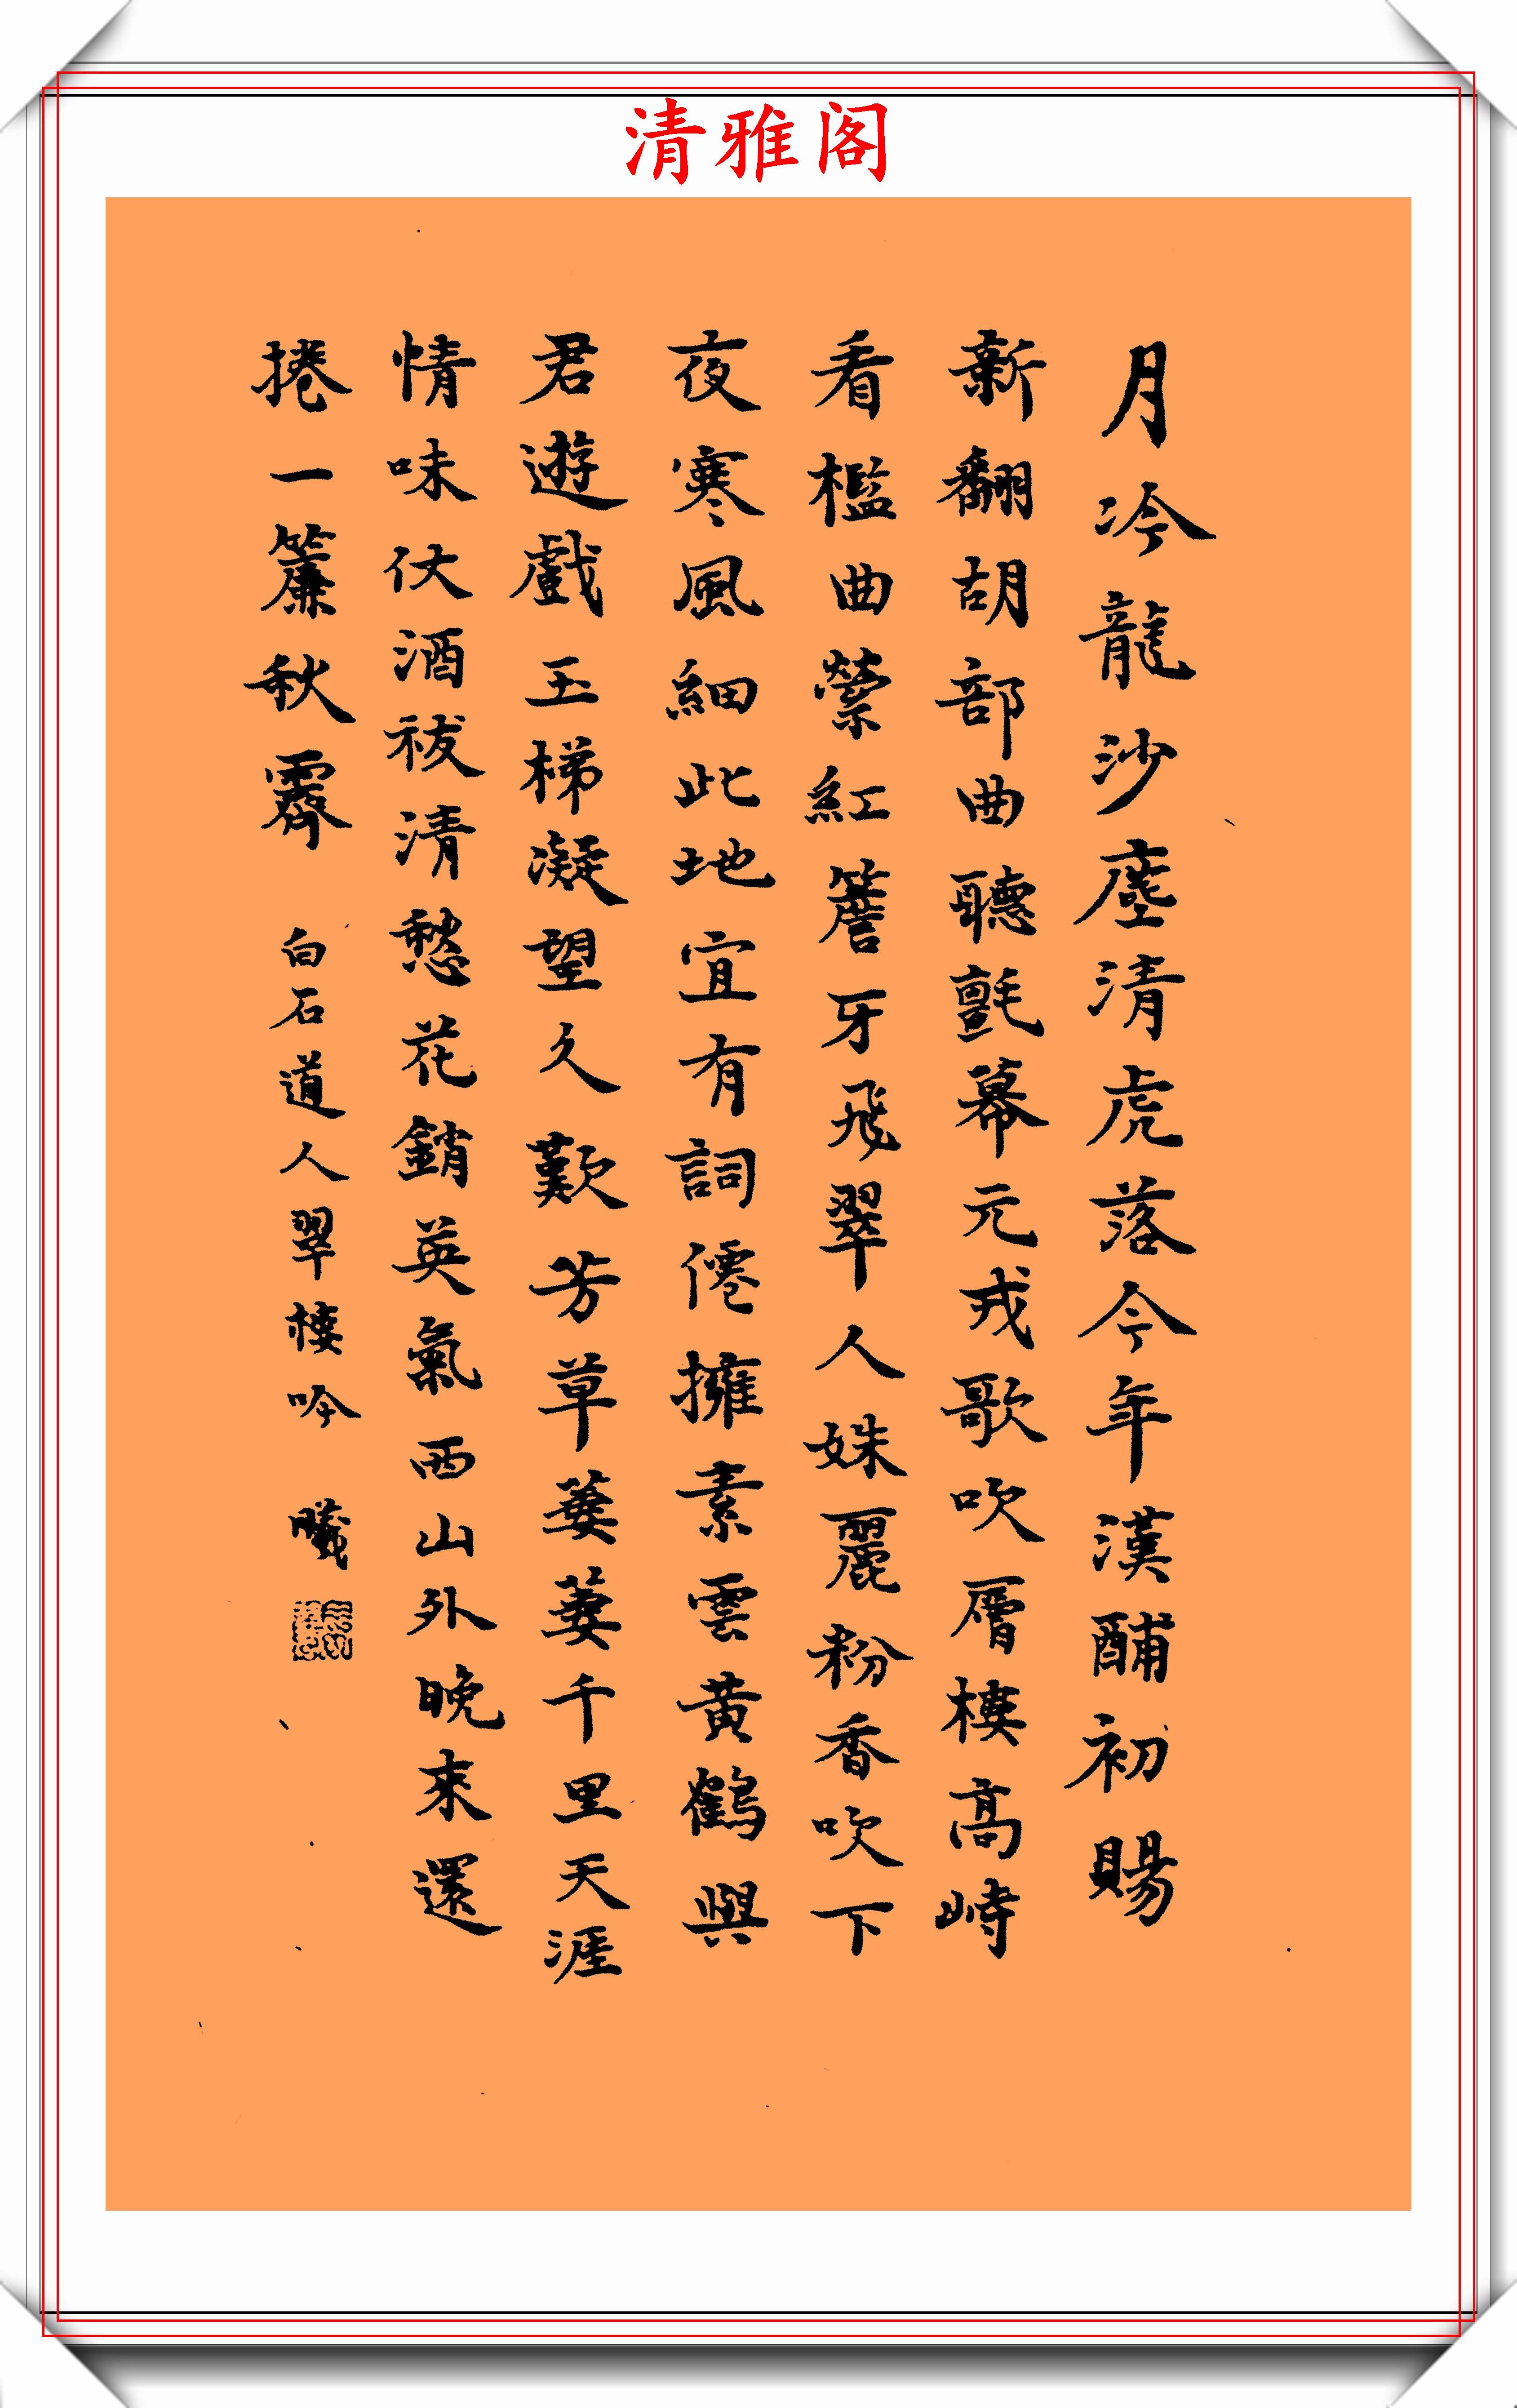 清雅阁
月冷龍沙塵清虎落今年漢酺初賜
新翻胡部曲聽氈幕元戎歌吹層樓高峙
看檻曲縈紅簷牙飛翠人姝麗粉香吹下
夜寒風細此地宜有詞僊擁素雲黃鶴與
君遊戲玉梯凝望久歎芳草萋萋千里天涯
情味仗酒祓清愁花銷英氣西山外晚來還
捲一簾秋霽
白石道人翠樓吟 曦